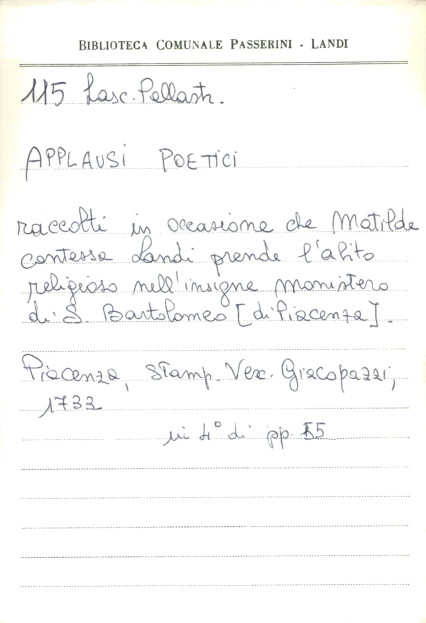 BIBLIOTECA COMUNALE PASSERINI - LANDI
115 Lasc. Pallastr.
APPLAUSI POETICI
raccolti in occasione che Matilde
contessa Landi prende l'abito
religioso nell'insigne monistero
di S. Bartolomeo [di Piacenza].
Piacenza, Stamp. Vex. Giacopazzi,
1733
in 4° di pp. 55